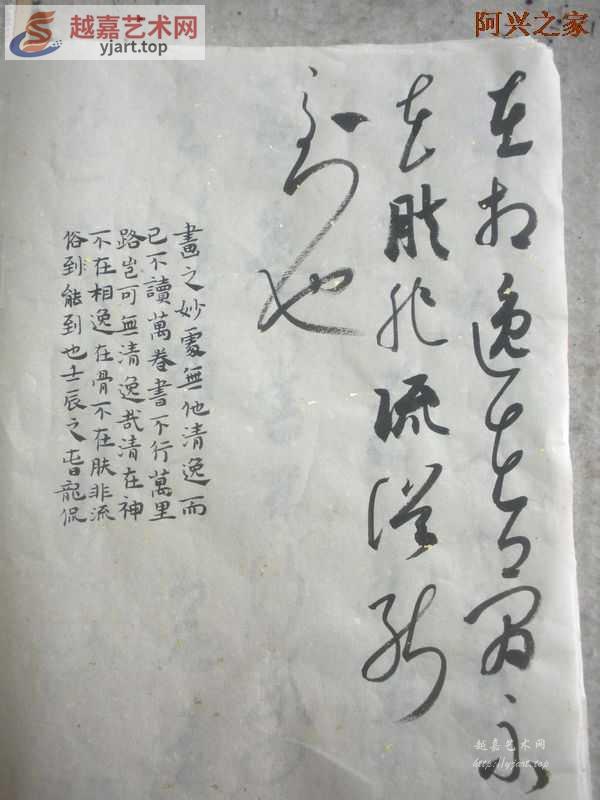 越嘉艺术网
yjart.top
阿兴之家
在相逸在骨不
在肤非流俗能
到也
畫之妙處無他清逸而
已不讀萬卷書不行萬里
路岂可無清逸哉清在神
不在相逸在骨不在肤非流
俗到能到也壬辰之旾龍侃
越嘉艺术网
http://yjart.top